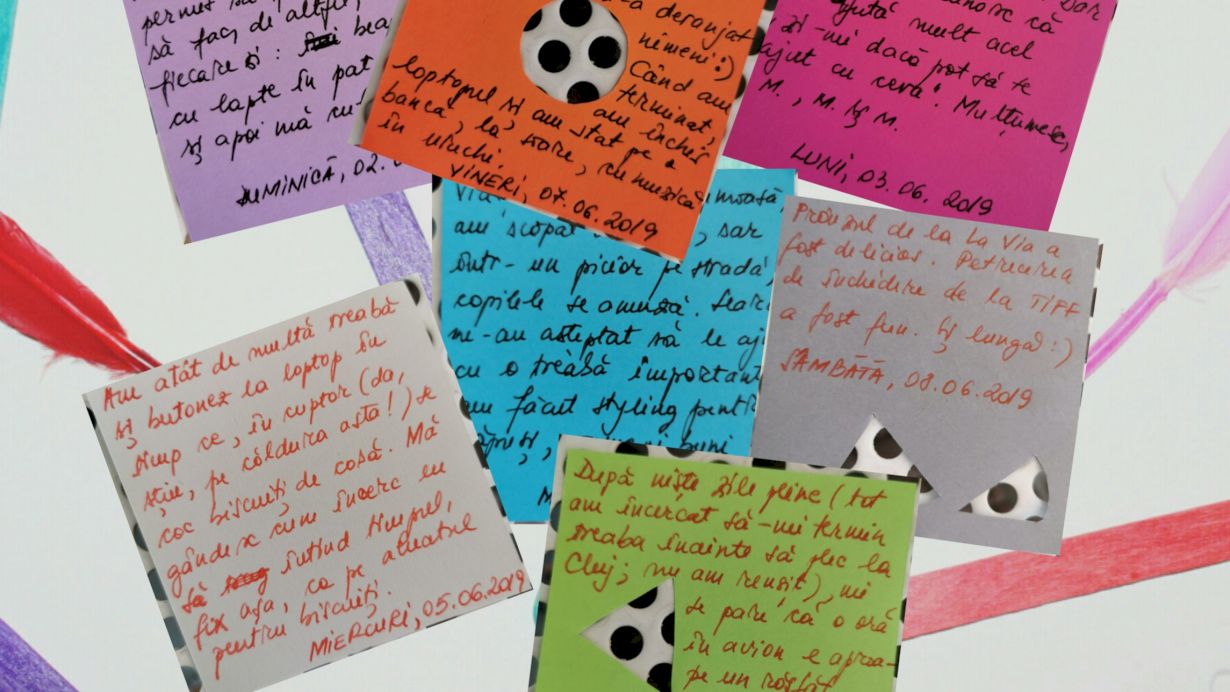 permit să
să fac, de altfel,
fiecare zi :
cu lapte în pat
și apoi mă
DUMINICĂ, 02.
deranjat
nimeni :)
Când am
terminat,
am închis
laptopul și am stat pe o
bancă, la soare, cu muzică
în urechi.
VINERI, 07.06.2019
că
ajută mult acel
zi-mi dacă pot să te
ajut cu ceva". Mulțumesc,
M., M. și M.
LUNI, 03.06.2019
am scăpat , sar
într-un picior pe stradă,
copiii se amuză.
mi-au așteptat să le
cu o treabă important
am făcut styling pentr
Prânzul de la La Via a
fost delicios. Petrecerea
de închidere de la TIFF
a fost fun. Și lungă :)
SÂMBĂTĂ, 08.06.2019
Am atât de multă treabă
și butonez la laptop în
timp ce, în cuptor (da,
știu, pe căldura asta!) se
coc biscuiți de casă. Mă
gândesc cum încerc eu
să întind timpul,
fix așa, ca pe aluatul
pentru biscuiți.
MIERCURI, 05.06.2019
După niște zile pline (tot
am încercat să-mi termin
treaba înainte să plec la
Cluj; nu am reușit), mi
se pare că o oră
în avion e aproa-
pe un răsfăț